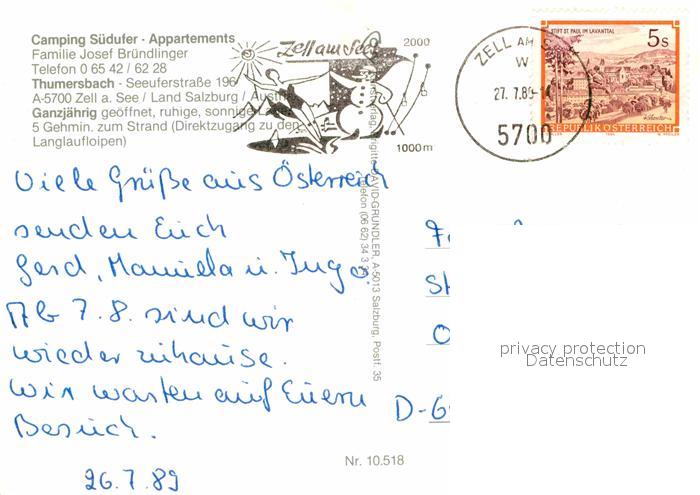 Camping Südufer · Appartements
Familie Josef Bründlinger
Telefon 0 65 42 / 62 28
Thumersbach - Seeuferstraße 196
A-5700 Zell a. See / Land Salzburg / Austria
Ganzjährig geöffnet, ruhige, sonnige Lage
5 Gehmin. zum Strand (Direktzugang zu den
Langlaufloipen)
Zell am See
2000
1000 m
ZELL AM
27. 7.89-1
5700
STIFT ST. PAUL IM LAVANTTAL
5 s
REPUBLIK ÖSTERREICH
Viele Grüße aus Österreich
senden Euch
Gerd, Manuela u. Ingo.
Ab 7.8. sind wir
wieder zuhause.
Wir warten auf Euern
Besuch.
26.7.89
Brigitte DAVID-GRUNDLER, A-5013 Salzburg, Postf. 35
Telefon (06 62) 34 3
D-6
privacy protection
Datenschutz
Nr. 10.518